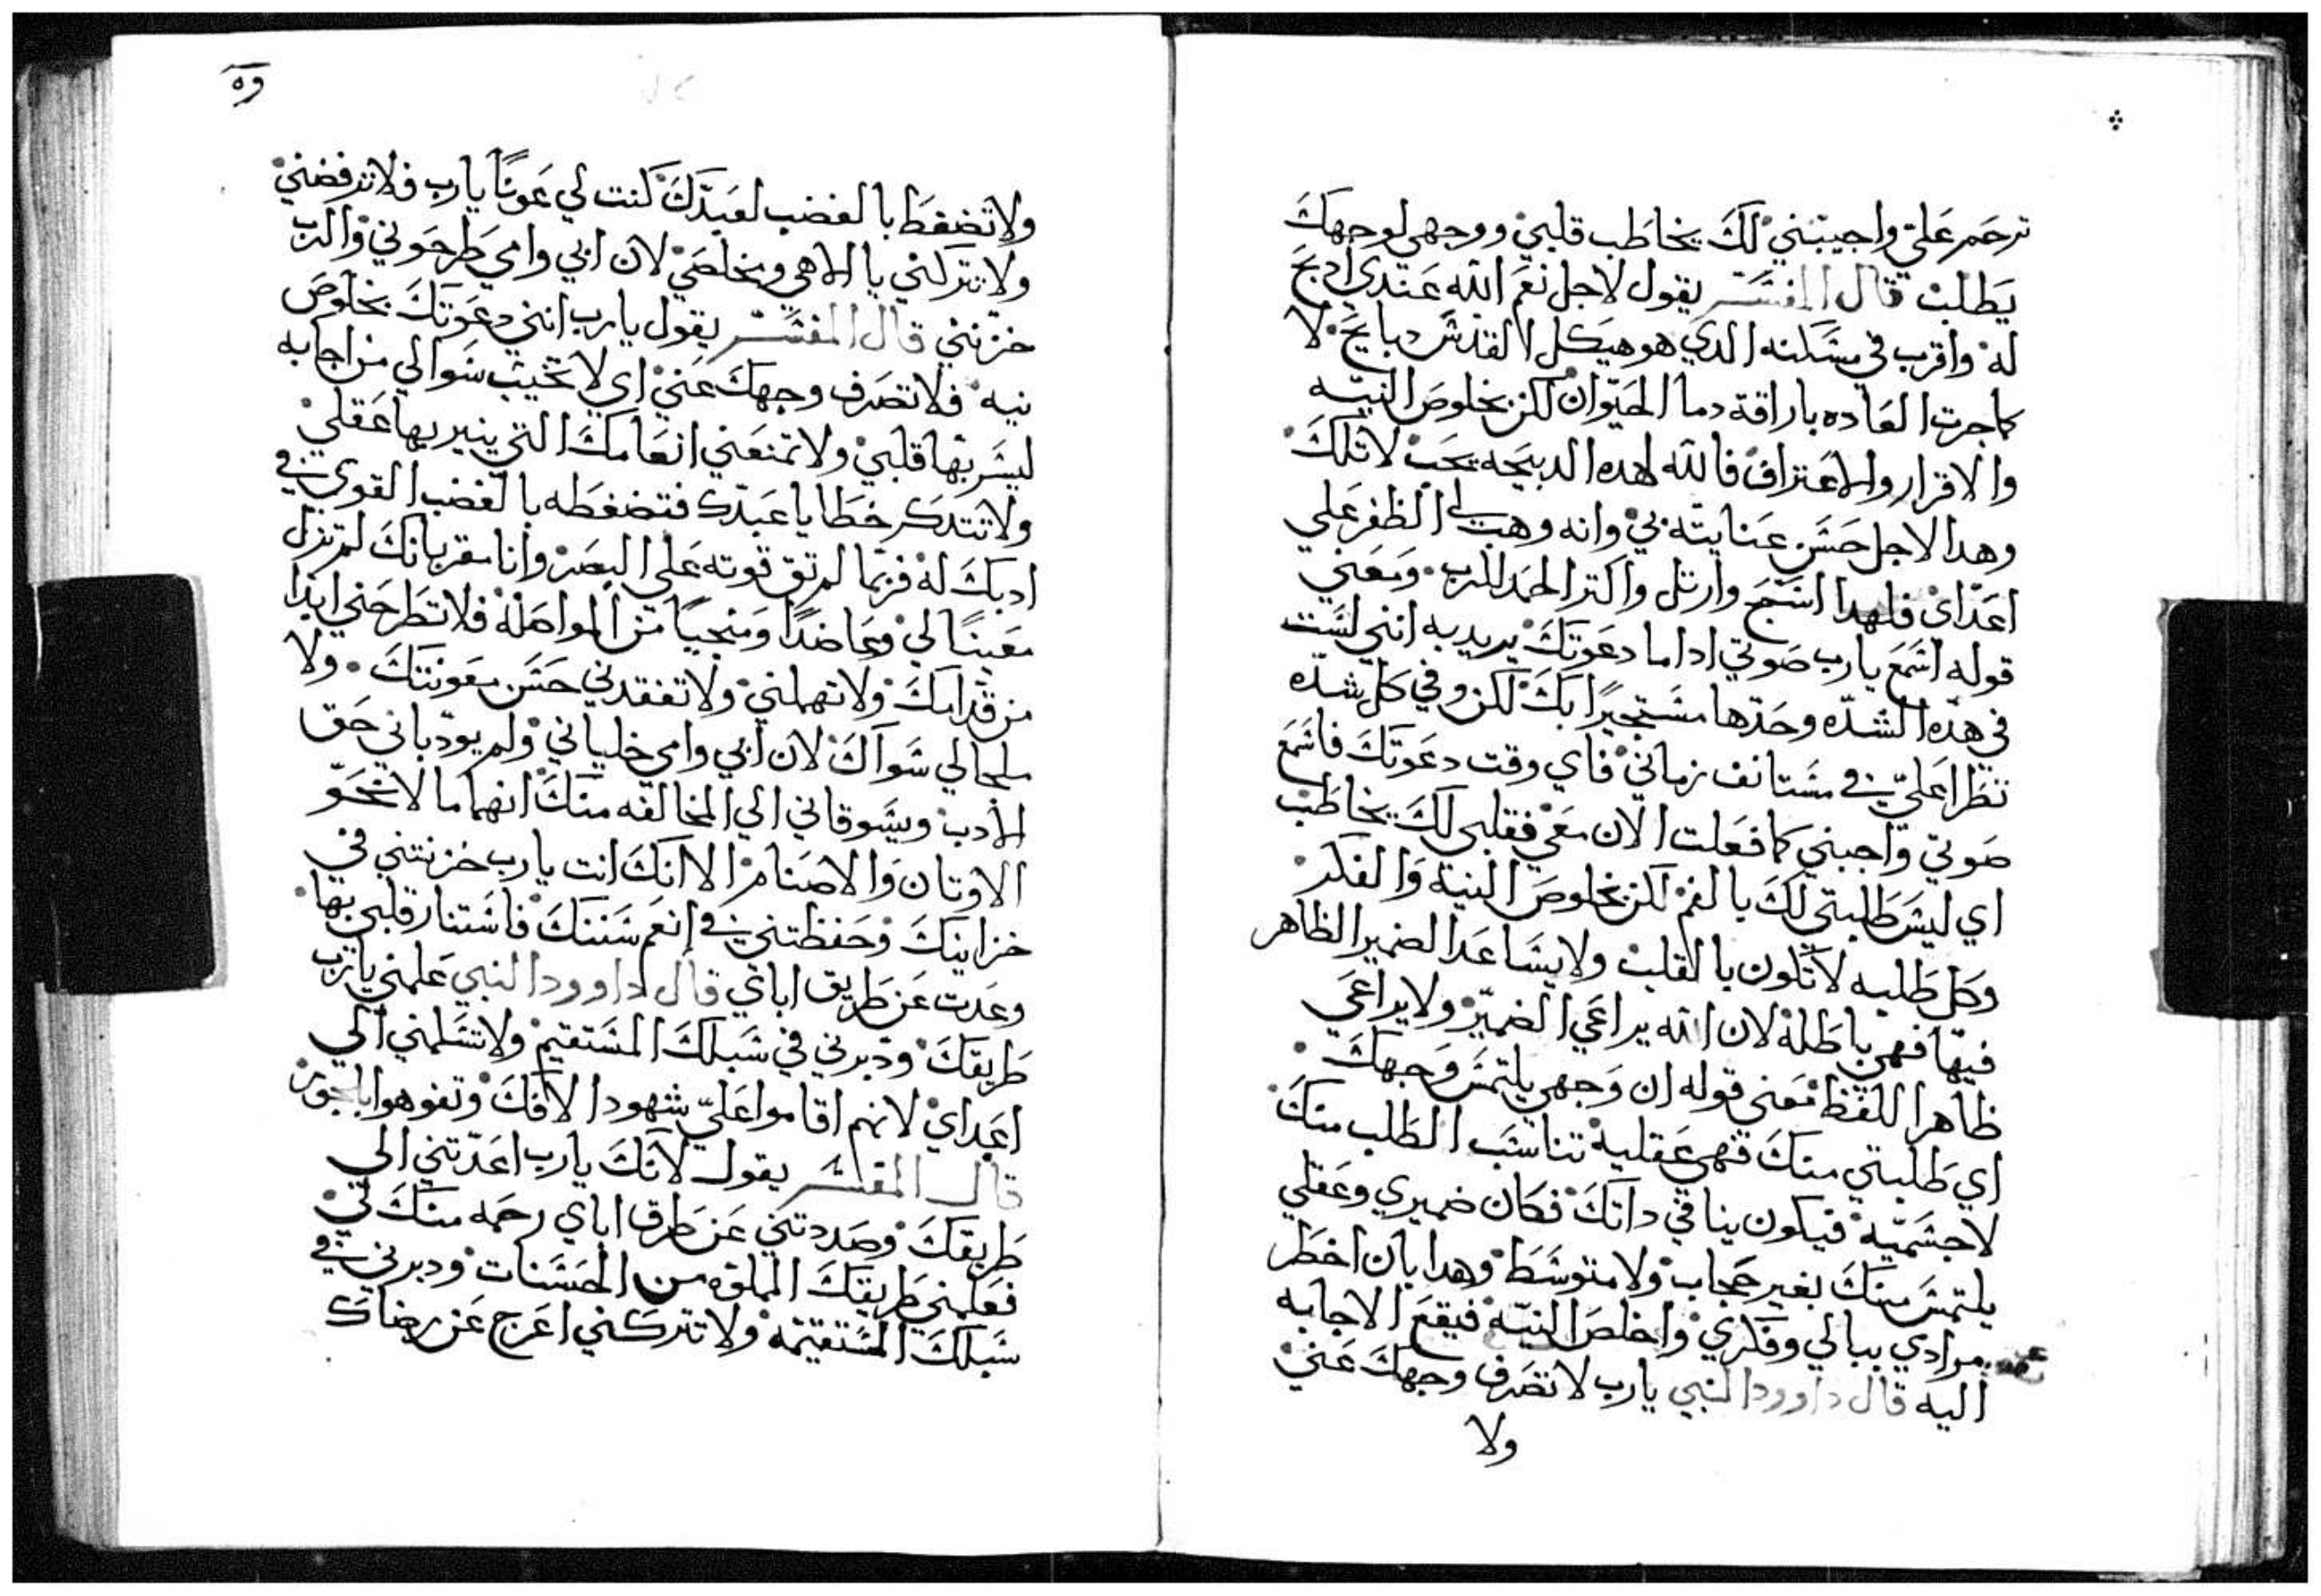 ترحم علي واجيبني لك يخاطب قلبي ووجهي لوجهك
يطلب قال المفسر يقول لاجل نعم الله عندي ادبح
له واقرب في مسكنه الدي هو هيكل القدس دبايح لا
كما جرت العاده باراقة دما الحيوان لكن بخلوص النيه
والاقرار والاعتراف فالله لهده الدبيحه يحب لا تلك
وهدا لاجل حسن عنايته بي وانه وهب لي الظفر علي
اعداي فلهدا اسبح وارتل واكتر الحمد للرب ومعني
قوله اسمع يارب صوتي اداما دعوتك يريد به انني لست
في هده الشده وحدها مستجيرا بك لكن وفي كل شده
تطرا علي في مستانف زماني فاي وقت دعوتك فاسمع
صوتي واجبني كما فعلت الان معي فقلبي لك يخاطب
اي ليس طلبتي لك بالفم لكن بخلوص النية والفكر
وكل طلبه لا تكون بالقلب ولا يساعدا لضمير الظاهر
فيها فهي باطلة لان الله يراعي الضمير ولا يراعي
ظاهر اللفظ معني قوله ان وجهي يلتمس وجهك
اي طلبتي منك فهي عقلية تناسب الطلب منك
لا جسمية فيكون ينافي داتك فكان ضميري وعقلي
يلتمس منك بغير حجاب ولا متوسط وهدا بان اخطر
مرادي ببالي وفكري واخلص النية فيقع الاجابه
اليه قال داوود النبي يارب لا تصرف وجهك عني
ولا
وه
ولا تضغط بالغضب لعبدك كنت لي عونا يارب فلا ترفضني
ولا تتركني يا الاهي ومخلصي لان ابي وامي طرحوني والرب
خزنني قال المفسر يقول يارب انني دعوتك بخلوص
نيه فلا تصرف وجهك عني اي لا تخيب سوالي من اجابه
ليسر بها قلبي ولا تمنعني انعامك التي ينير بها عقلي
ولا تتدكر خطايا عبدك فتضغطه بالغضب القوي في
ادبك له فربما لم تق قوته علي الصبر وانا مقر بانك لم تزل
معينا لي وعاضدا ومنجيا من المواصله فلا تطرحني ابدا
من قدامك ولا تهملني ولا تفقدني حسن معونتك ولا
ملجا لي سواك لان ابي وامي خلياني ولم يودباني حق
الادب ويسوقاني الي المخالفه منك انهما مالا نحو
الاوتان والاصنام الا انك انت يارب خزنتني في
خزاينك وحفظتني في انعم سننك فاستنار قلبي بها
وعدت عن طريق اباي قال داوود النبي علمني يارب
طريقك ودبرني في سبلك المستقيم ولا تسلمني الي
اعداي لانهم اقاموا علي شهود الافك وتفوهوا بالجور
قال المفسر يقول لانك يارب اعدتني الي
طريقك وصددتني عن طرق اباي رحمه منك لي
فعلمني طريقك المملوه من الحسنات ودبرني في
سبلك المستقيمه ولا تتركني اعرج عن رضاك